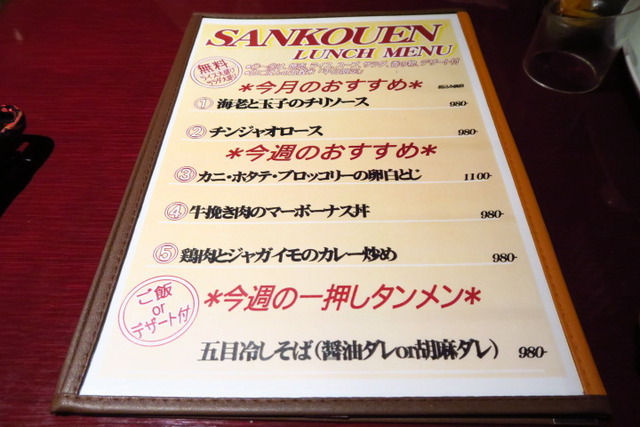 SANKOUEN
LUNCH MENU
無料
ライス大盛り
*今月のおすすめ*
① 海老と玉子のチリソース 980-
② チンジャオロース 980-
*今週のおすすめ*
③ カニ・ホタテ・ブロッコリーの卵白とじ 1100-
④ 牛挽き肉のマーボーナス丼 980-
⑤ 鶏肉とジャガイモのカレー炒め 980-
ご飯
or
デザート付
*今週の一押しタンメン*
五目冷しそば(醤油ダレor胡麻ダレ) 980-